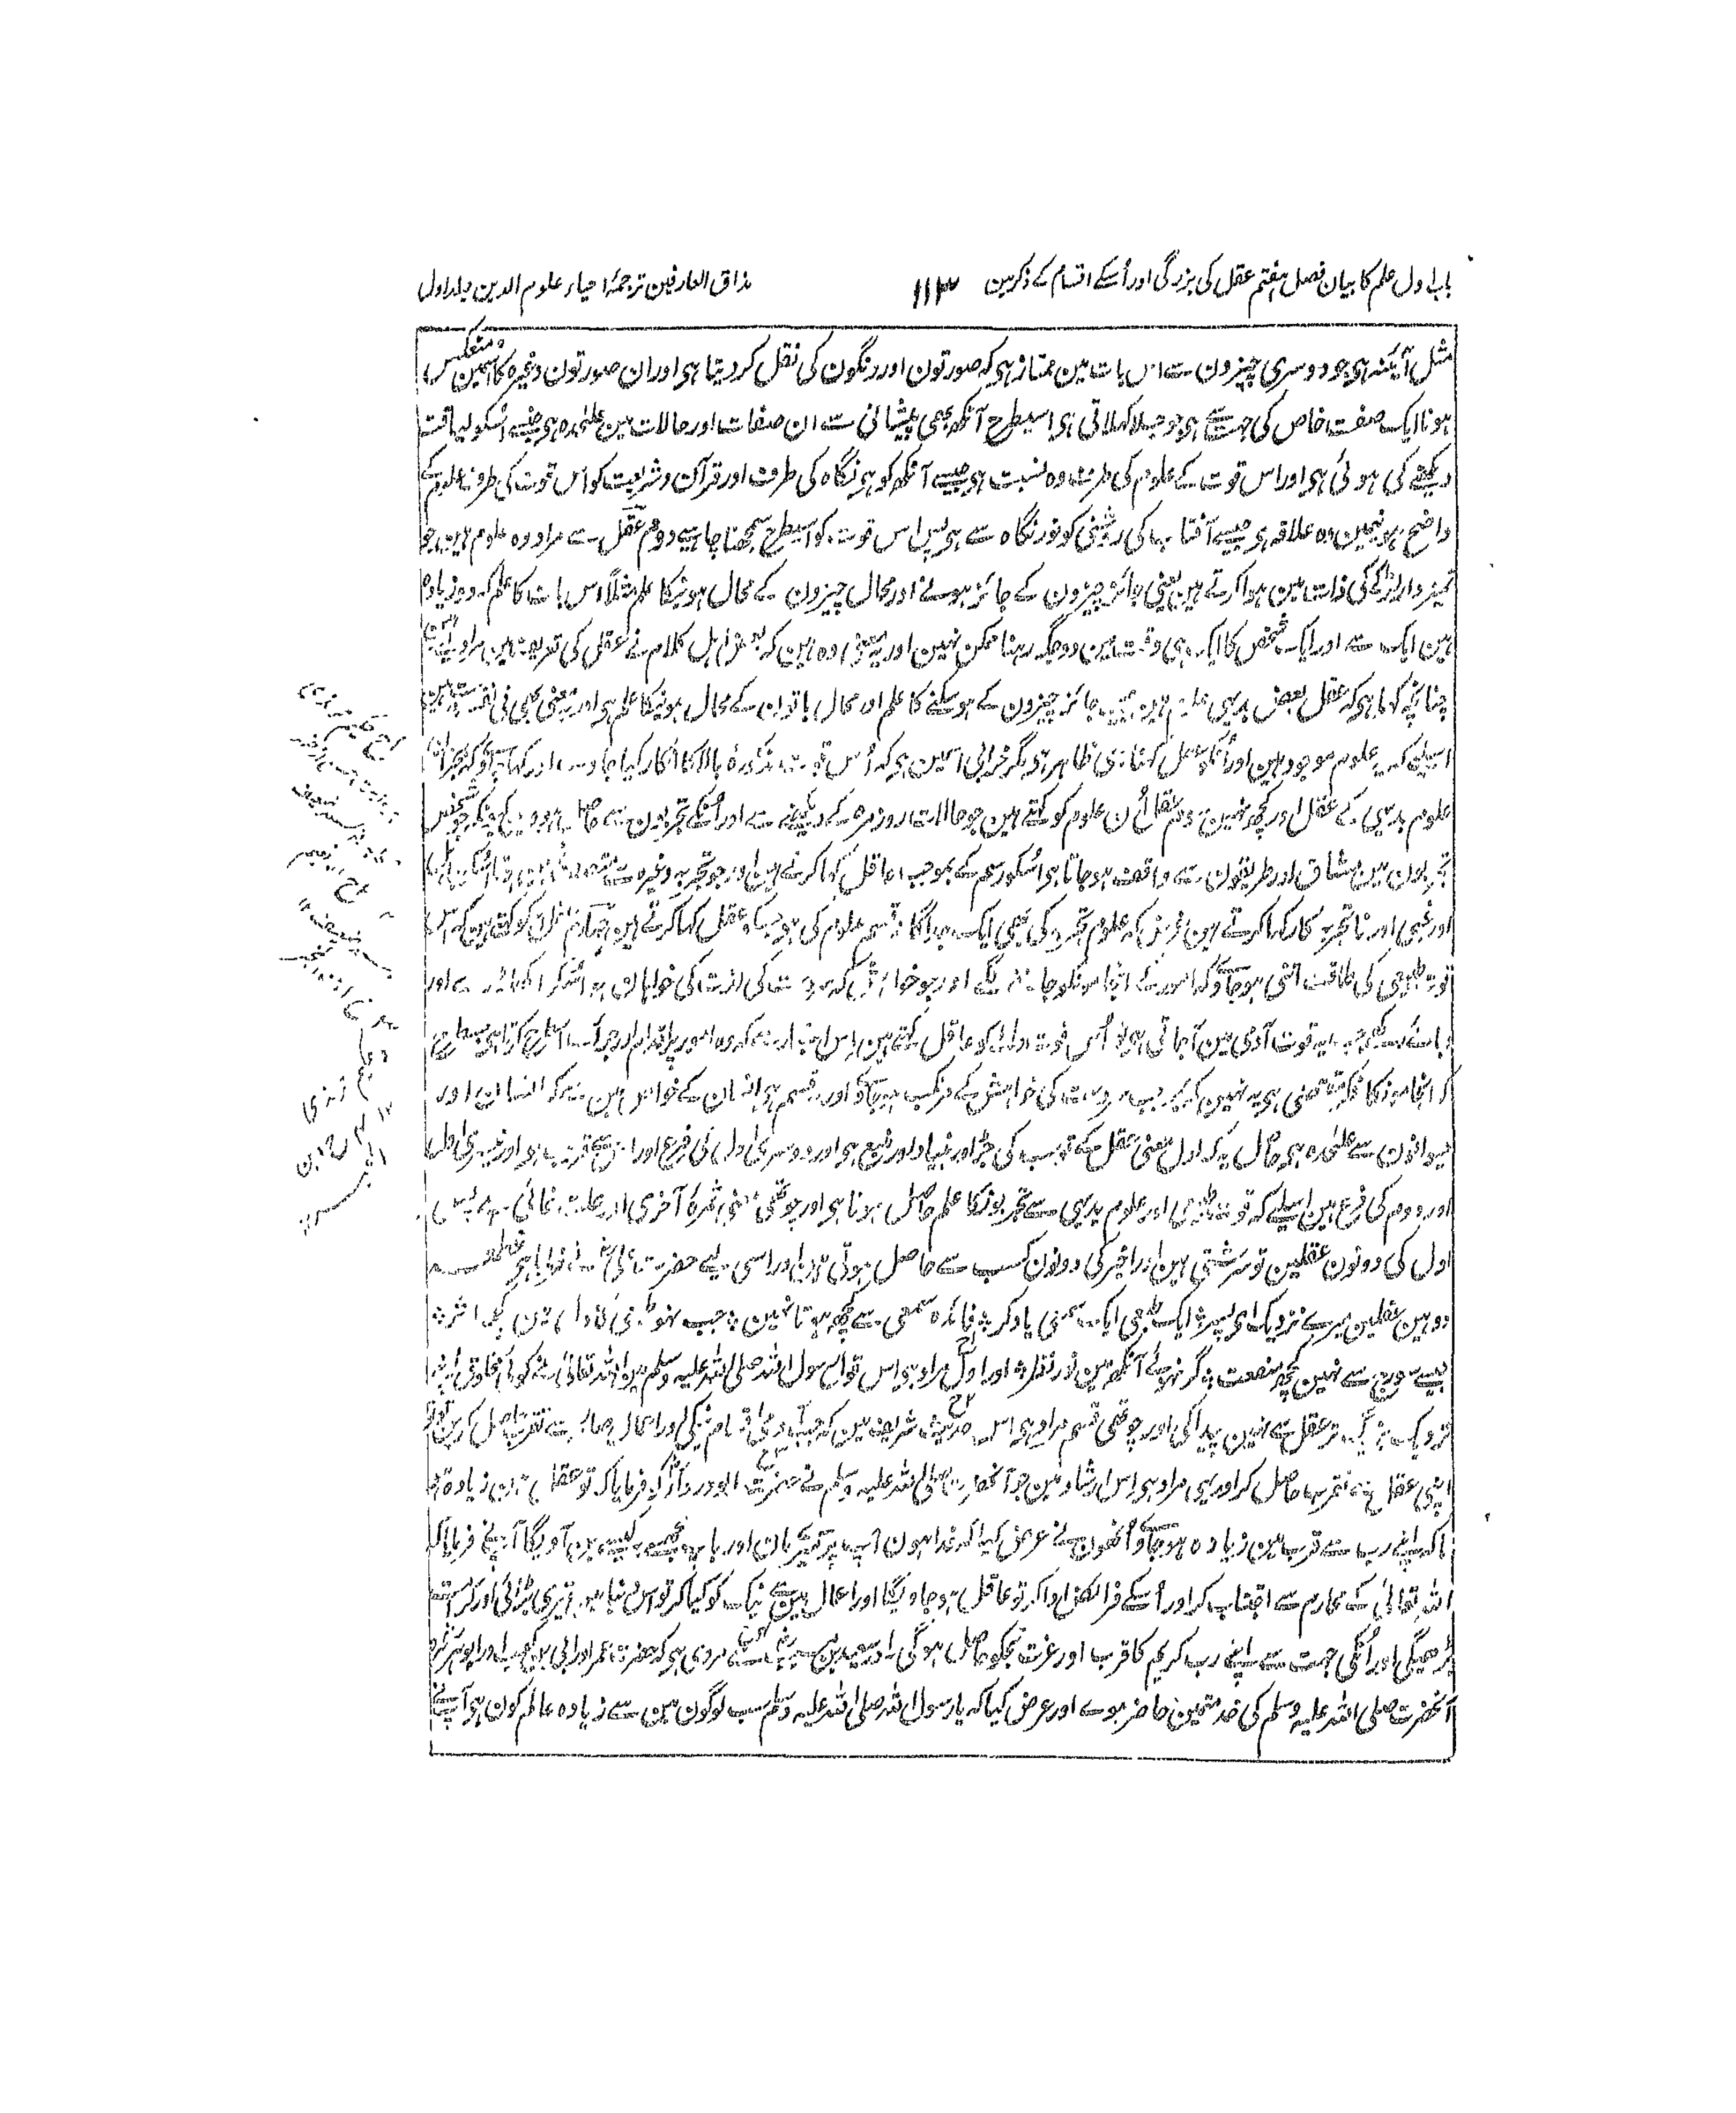 باب اول علم کا بیان فصل ہفتم عقل کی بزرگی اور اُسکے اقسام کے ذکر مین ۱۱۳ مذاق العارفین ترجمۂ احیاء علوم الدین جلد اول
مثل آئینہ ہی جو دوسری چیزون سے اس بات مین ممتاز ہی کہ صورتون اور رنگون کی نقل کر دیتا ہی اور ان صورتون وغیرہ کا اسمین منعکس
ہونا ایک صفت خاص کی جہت سے ہی جو جلا کہلاتی ہی اسیطرح آنکھ بھی پیشانی سے ان صفات اور حالات مین علٰحدہ ہی جنسے اُسکو لیاقت
دیکھنے کی ہوئی ہی اور اس قوت کے علوم کی طرف وہ نسبت ہی جیسے آنکھ کو ہی نگاہ کی طرف اور قرآن و شریعت کو اس قوت کی طرف علوم کے
واضح ہونیمین وہ علاقہ ہی جیسے آفتاب کی روشنی کو نور نگاہ سے ہی پس اس قوت کو اسیطرح سمجھنا چاہیے دوم عقل سے مراد وہ علوم ہین جو
تمیز دار لڑکے کی ذات مین ہوا کرتے ہین یعنی جائز چیزون کے جائز ہونے اور محال چیزون کے محال ہونیکا علم مثلًا اس بات کا علم کہ دو زیادہ
ہین ایک سے اور ایک شخص کا ایک ہی وقت مین دو جگہ رہنا ممکن نہین اور یہ معنی وہ ہین کہ بعض اہل کلام نے عقل کی تعریف مین مراد لیے
چنانچہ کہا ہی کہ عقل بعض بدیہی علوم ہین جیسے جائز چیزون کے ہو سکنے کا علم اور محال باتون کے محال ہونیکا علم ہی اور یہ معنی بھی فی نفسہ
اسلیے کہ یہ علوم موجود ہین اور اُنکو عقل کہنا بھی ظاہر ہی مگر خرابی اسمین ہی کہ اُس قوت مذکورہ بالا کا انکار کیا جاوے اور کہا جاوے کہ بجز ان
علوم بدیہی کے عقل اور کچھ نہین سوم عقل اُن علوم کو کہتے ہین جو حالات روزمرہ کے دیکھنے سے اور اُنکے تجربون سے حاصل ہووین کیونکہ جو شخص
تجربون مین مشاق اور طریقون سے واقف ہو جاتا ہی اُسکو رسم کے بموجب عاقل کہا کرتے ہین اور جو تجربہ وغیرہ سے
اور غبی اور ناتجربہ کار کہا کرتے ہین غرض کہ علوم تجربہ کی بھی ایک جداگانہ قسم علوم کی ہو جسکو عقل کہا کرتے ہین چہارم عقل اُسکو کہتے ہین کہ اُس
قوت طبعی کی طاقت اتنی ہو جاوے کہ امور کے انجام کو جاننے لگے اور جو خواہش کہ سردست کی لذت کی خواہان ہو اُسکو
جب یہ قوت آدمی مین آ جاتی ہو تو اُس قوت والے کو عاقل کہتے ہین اس اعتبار سے کہ وہ امور پر اقدام اور حرکت اسطرح کرتا ہی جسطرح
کہ انجام کا فکر مقتضی ہی یہ نہین کہ سردست کی خواہش کے مرتکب ہو جاوے اور یہ قسم ہی انسان کے خواص مین سے کہ انسان اور
حیوانون سے علٰحدہ ہی حاصل یہ کہ اول معنی عقل کے تو سب کی جڑ اور بنیاد اور منبع ہی اور دوسری اول کی فرع اور اس سے قریب ہی اور تیسری اول
اور دوم کی فرع ہین اسلیے کہ قوت طبعی اور علوم بدیہی سے تجربونکا علم حاصل ہوتا ہی اور چوتھی معنی ثمرۂ آخری اور علت غائی ہی پس
اول کی دونون عقلین تو سرشتی ہین اور اخیر کی دونون کسب سے حاصل ہوتی ہین اور اسی لیے حضرت علی رض نے فرمایا ہی
دو ہین عقلین میرے نزدیک ای پسر ؛ ایک طبعی ایک سمعی یاد کر ؛ فائدہ سمعی سے کچھ ہوتا نہین ؛ جب نہو طبعی کا دل مین کچھ اثر ؛
جیسے سورج سے نہین کچھ منفعت ؛ گر نہو آنکھ مین نور نظر ؛ اور اول مراد ہی اس قول رسول اللہ صلی اللہ علیہ وسلم مین اللہ تعالیٰ نے کوئی مخلوق اپنے
نزدیک بزرگ تر عقل سے نہین پیدا کی اور چوتھی قسم مراد ہی اس حدیث شریف مین کہ جب آدمی اقسام نیکی اور اعمال صالح سے تقرب حاصل کرین تو تو
اپنی عقل سے تقرب حاصل کر اور یہی مراد ہی اس ارشاد مین جو آنحضرت صلی اللہ علیہ وسلم نے حضرت ابو درداء کو فرمایا کہ تو عقل مین زیادہ ہو
تاکہ اپنے رب سے قرب مین زیادہ ہو جاوے اُنھون نے عرض کیا کہ فدا ہون آپ پر میرے مان اور باپ مجھسے کیسے بن آویگا آپنے فرمایا کہ
اللہ تعالیٰ کے محارم سے اجتناب کر اور اُسکے فرائض ادا کر تو عاقل ہو جاویگا اور اعمال مین سے نیک کو کیا کر تو اس دنیا مین تیری بڑائی اور کرامت
بڑھیگی اور اُنکی جہت سے اپنے رب کریم کا قرب اور عزت تجکو حاصل ہوگی اور سعید بن مسیب سے مروی ہی کہ حضرت عمر اور ابی بن کعب اور ابو ہریرہ
آنحضرت صلی اللہ علیہ وسلم کی خدمتمین حاضر ہوے اور عرض کیا کہ یا رسول اللہ صلی اللہ علیہ وسلم سب لوگون مین سے زیادہ عالم کون ہی آپنے